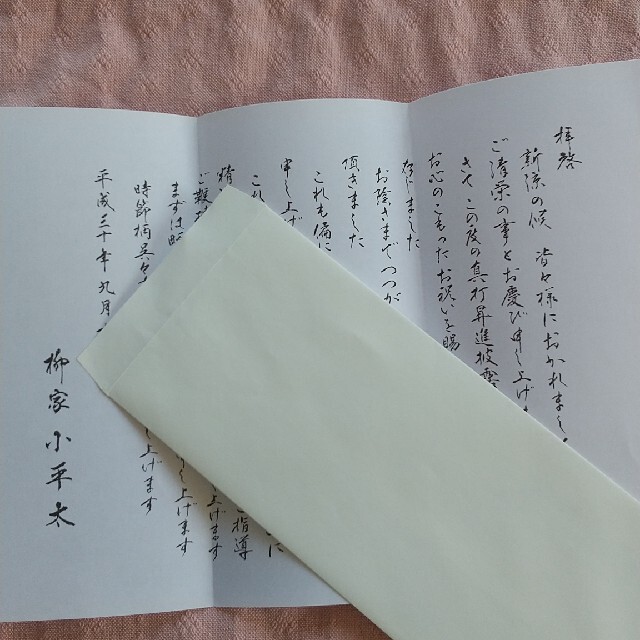 拝啓
新涼の候 皆々様におかれまして
ご清栄の事とお慶び申し上げま
さて この度の真打昇進披露
お心のこもったお祝いを賜
存じました
お陰さまでつつが
頂きました
これも偏に
申し上げ
これ に
精 ご指導
ご鞭 上げます
まずは略 申し上げます
時節柄呉々 し上げます
平成三十年九月
柳家小平太